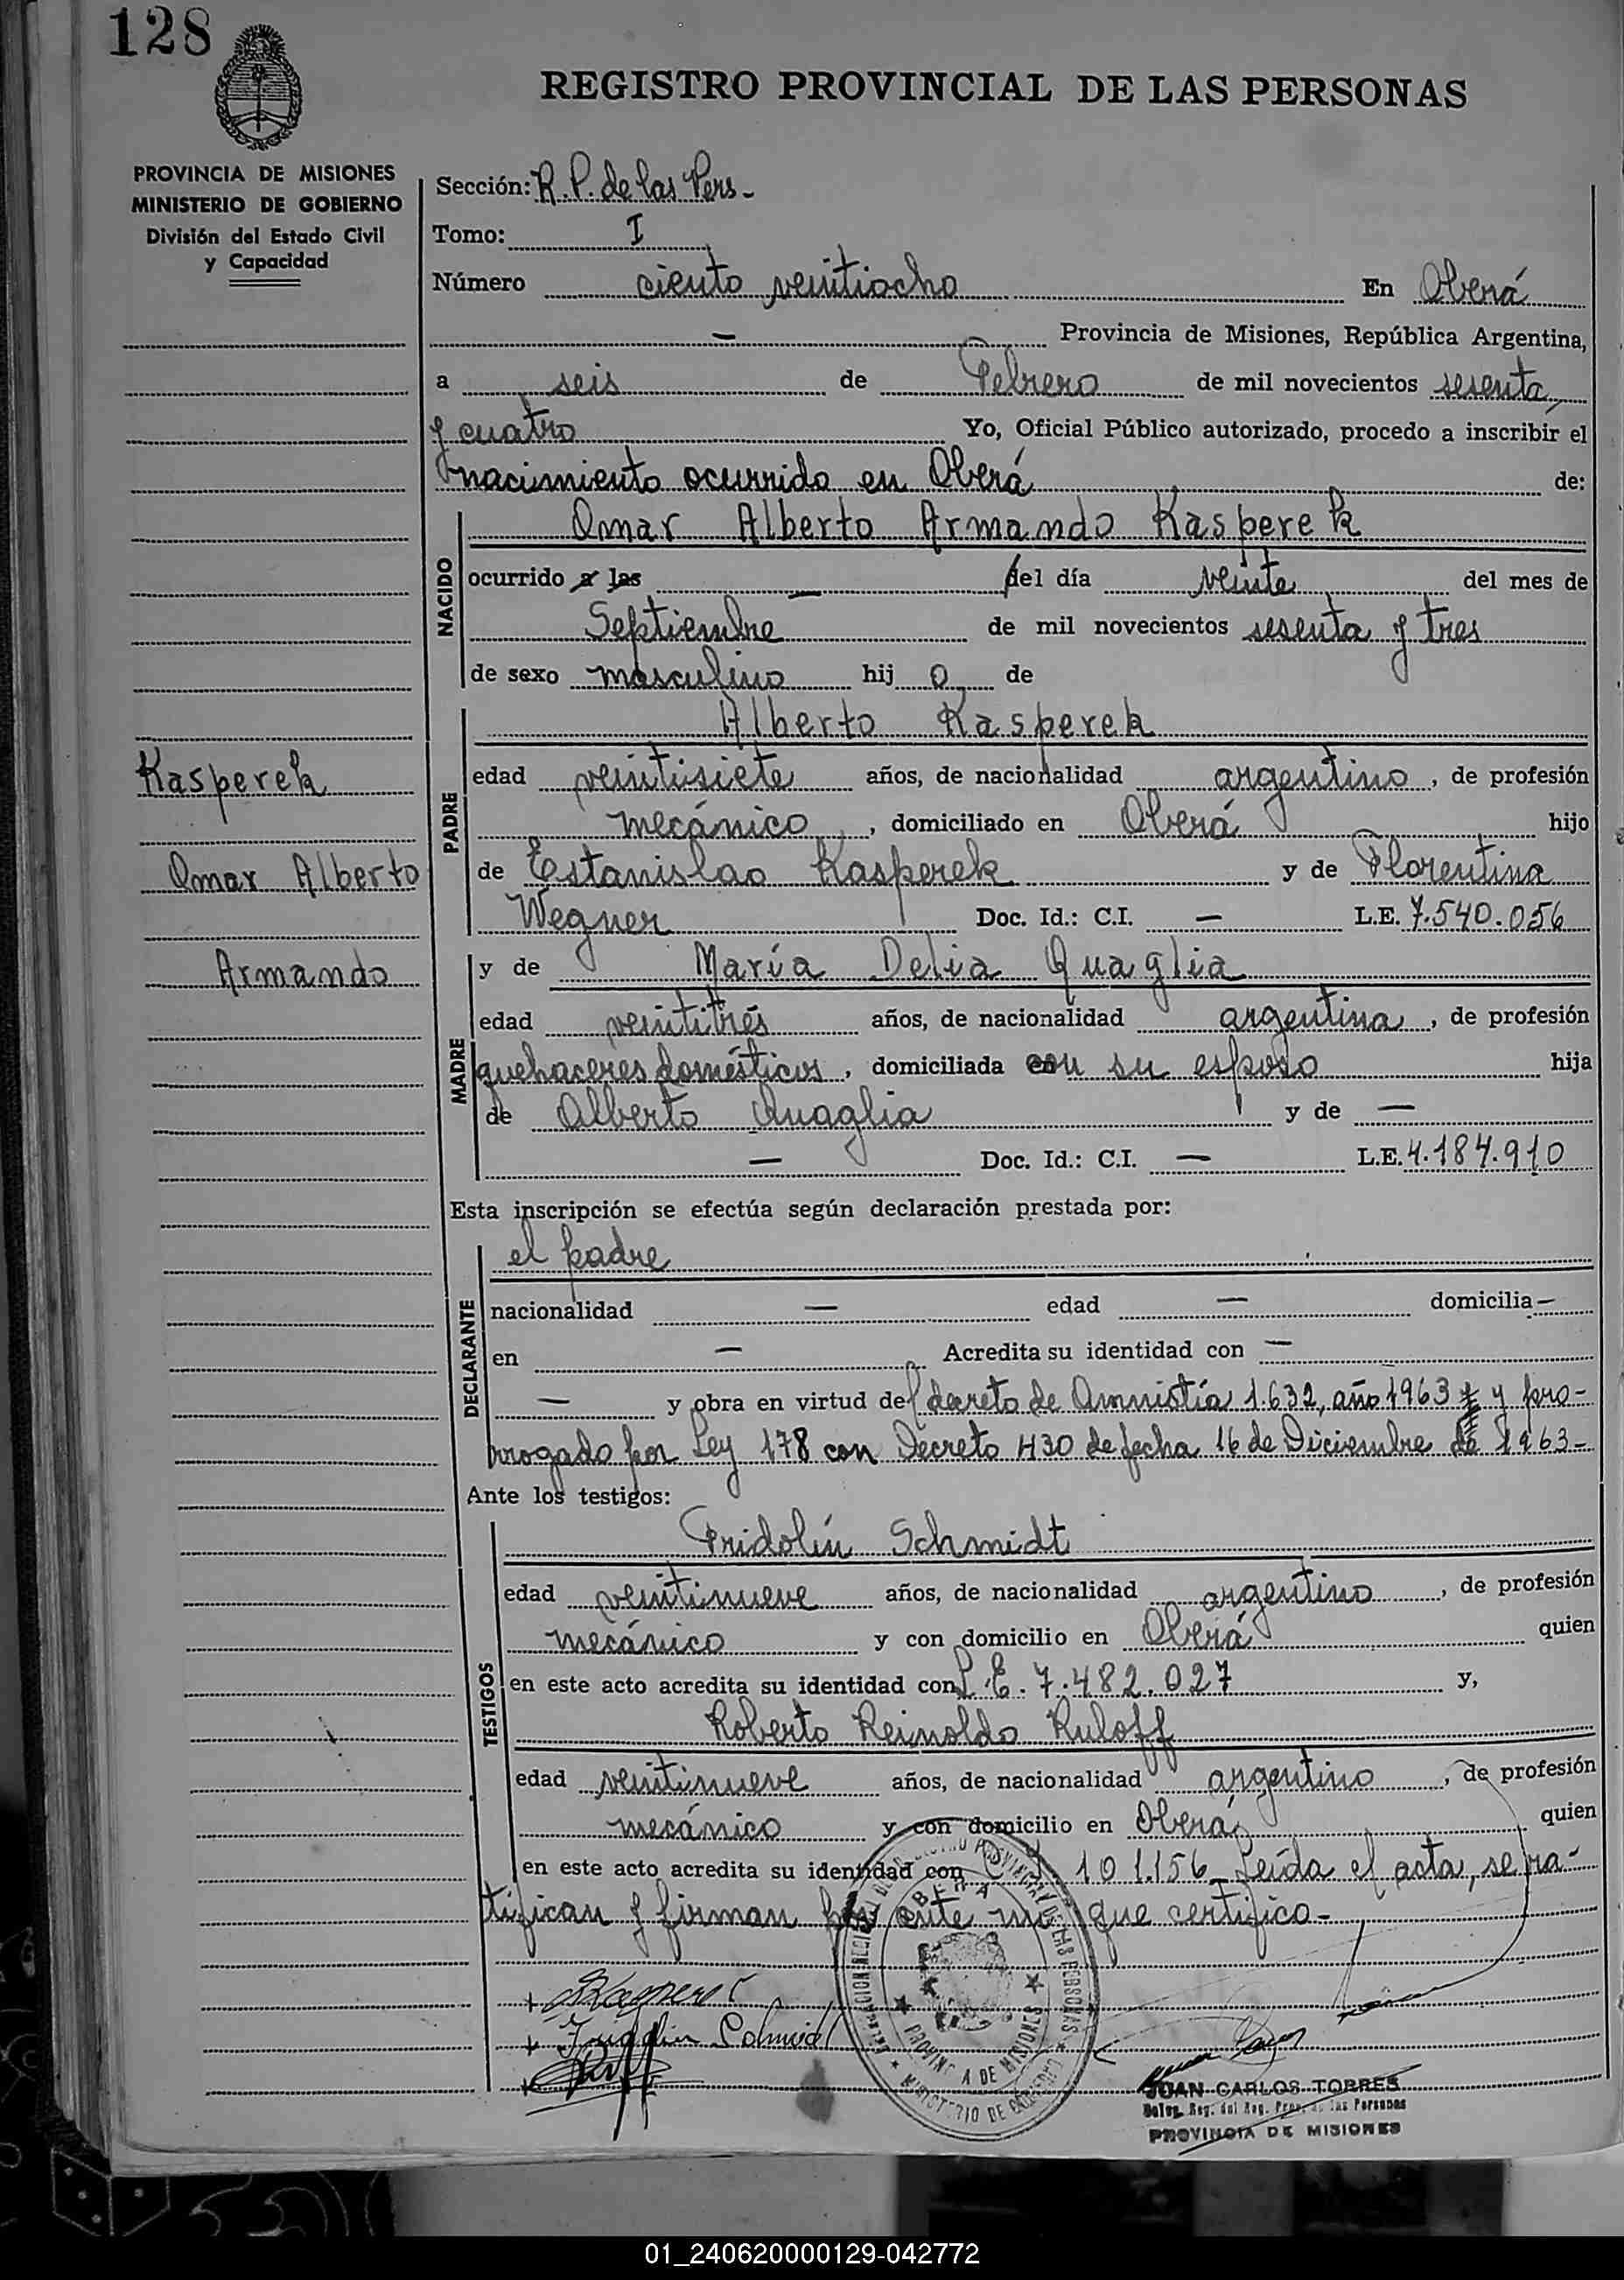 128
REGISTRO PROVINCIAL DE LAS PERSONAS
PROVINCIA DE MISIONES
MINISTERIO DE GOBIERNO
División del Estado Civil
y Capacidad
Sección: R. P. de las Pers -
Tomo: I
Número ciento veintiocho En Oberá
— Provincia de Misiones, República Argentina,
a seis de Febrero de mil novecientos sesenta
y cuatro Yo, Oficial Público autorizado, procedo a inscribir el
nacimiento ocurrido en Oberá de:
NACIDO
Omar Alberto Armando Kasperek
ocurrido a las — del día veinte del mes de
Septiembre de mil novecientos sesenta y tres
de sexo masculino hij o de
PADRE
Alberto Kasperek
Kasperek
edad veintisiete años, de nacionalidad argentino, de profesión
mecánico, domiciliado en Oberá hijo
Omar Alberto
de Estanislao Kasperek y de Florentina
Wegner Doc. Id.: C.I. — L.E. 7.540.056
Armando
MADRE
y de María Delia Quaglia
edad veintitrés años, de nacionalidad argentina, de profesión
quehaceres domésticos, domiciliada con su esposo hija
de Alberto Quaglia y de —
— Doc. Id.: C.I. — L.E. 4.184.910
Esta inscripción se efectúa según declaración prestada por:
DECLARANTE
el padre
nacionalidad — edad — domicilia —
en — Acredita su identidad con —
— y obra en virtud del decreto de Amnistía 1.632, año 1963 y pro-
rrogado por Ley 178 con Decreto 430 de fecha 16 de Diciembre de 1963-
Ante los testigos:
TESTIGOS
Fridolín Schmidt
edad veintinueve años, de nacionalidad argentino, de profesión
mecánico y con domicilio en Oberá quien
en este acto acredita su identidad con L.E. 7.482.027 y,
Roberto Reinoldo Ruloff
edad veintinueve años, de nacionalidad argentino, de profesión
mecánico y con domicilio en Oberá quien
en este acto acredita su identidad con 101.156 Leída el acta, se ra-
tifican y firman ante mí que certifico-
Fridolin Schmidt
OBERÁ
PROVINCIA DE MISIONES
MINISTERIO DE GOBIERNO
JUAN CARLOS TORRES
Deleg. Reg. del Reg. Prov. de las Personas
PROVINCIA DE MISIONES
01_240620000129-042772